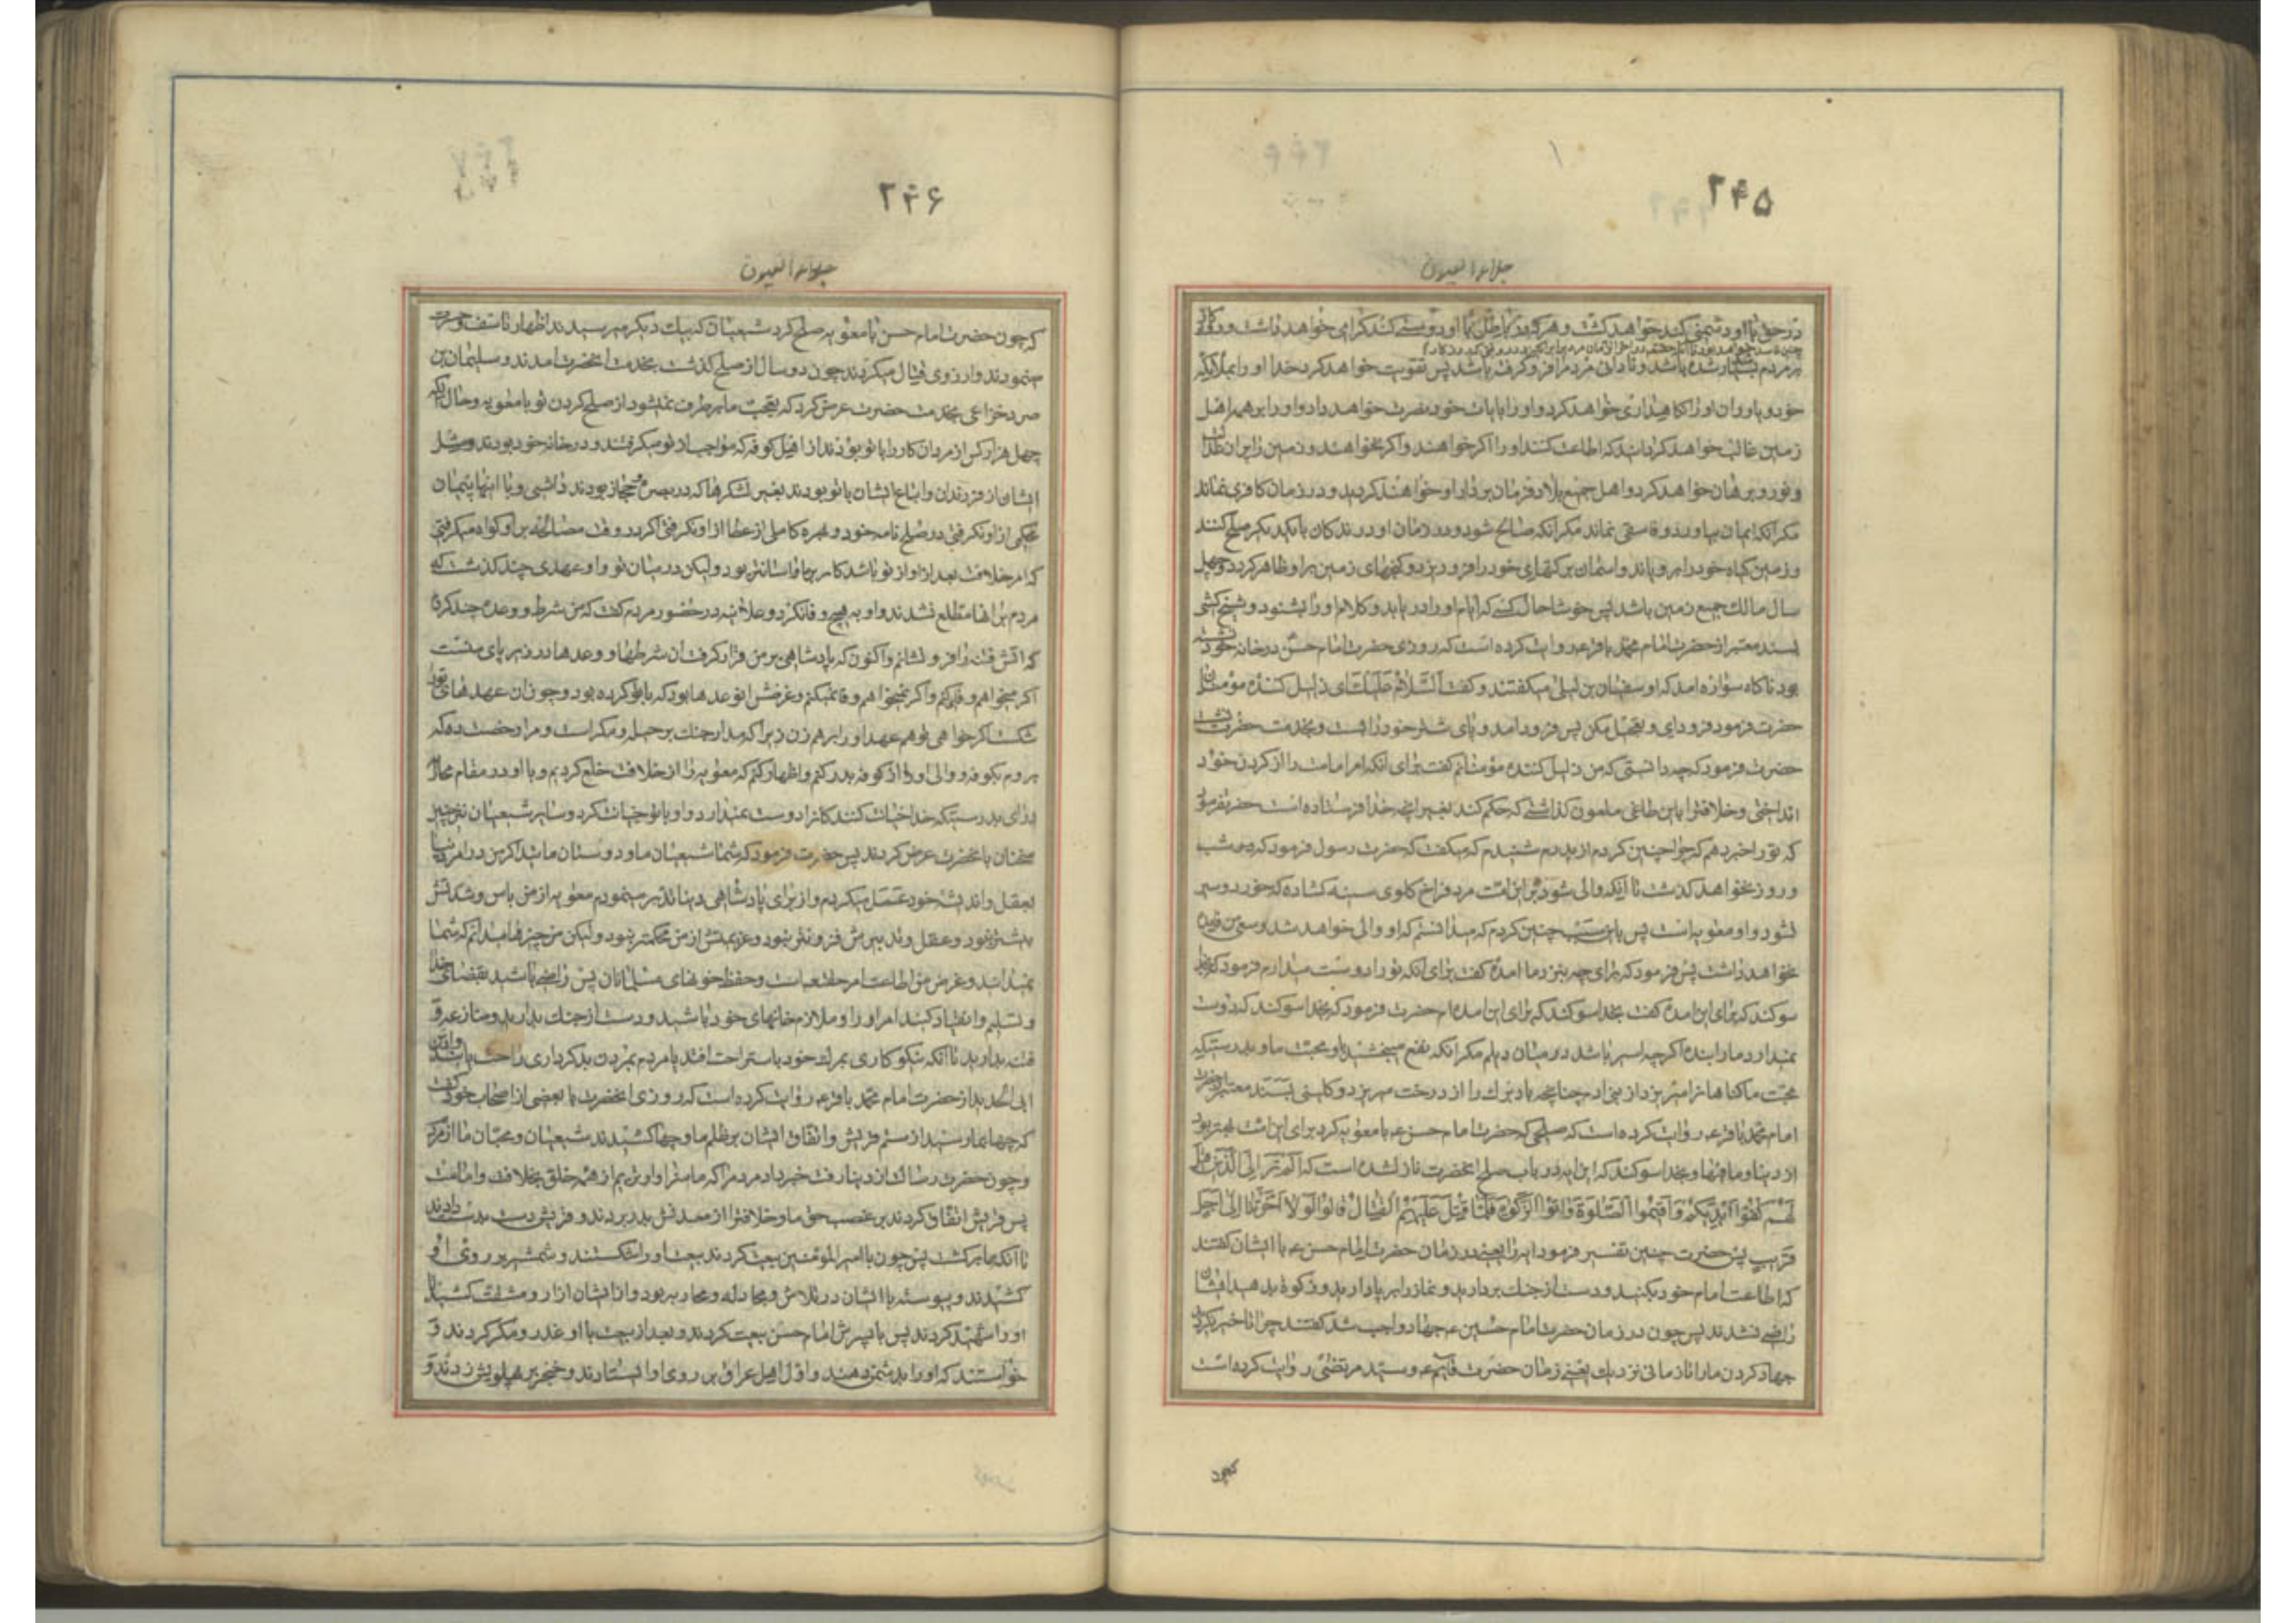 ۲۴۵
جلاء العیون
در حق ما او دشمنی کند خواهد کشت و هر که در باطل با او دوستی کند گرامی خواهد داشت و در
بر مردم بسیار شده باشد و نادانی مردم را فرو گرفته باشد پس تقویت خواهد کرد خدا او را بملائکه
خود و یاوران او را نگاهداری خواهد کرد و او را بایات خود نصرت خواهد داد و او را بر همه اهل
زمین غالب خواهد گردانید که اطاعت کنند او را اگر خواهند و اگر نخواهند و زمین را پر از عدالت
و نور و برهان خواهد کرد و اهل جمیع بلاد فرمان بردار او خواهند گردید و در زمان کافری نماند
مگر آنکه ایمان بیاورد و فاسقی نماند مگر آنکه صالح شود و در زمان او درندگان با یکدیگر صلح کنند
و زمین گیاه خود را برویاند و اسمان برکتهای خود را فرو ریزد و گنجهای زمین بر او ظاهر گردد و چهل
سال مالک جمیع زمین باشد پس خوشا حال کسی که ایام او را در یابد و کلام او را بشنود و شیخ کشی
بسند معتبر از حضرت امام محمد باقر ع روایت کرده است که روزی حضرت امام حسن در خانه خود نشسته
بود ناگاه سواره امد که او سفیان بن لیلی میگفتند و گفت السلام علیک ای ذلیل کننده مؤمنان
حضرت فرمود فرود ای و تعجیل مکن پس فرود امد و پای شتر خود را بست و بخدمت حضرت نشست
حضرت فرمود که چه دانستی که من ذلیل کننده مؤمنانم گفت برای آنکه امر امامت را از گردن خود
انداختی و خلافترا باین طاغی ملعون گذاشتی که حکم کند بغیر انچه خدا فرستاده است حضرت فرمود
که تو را خبر دهم که چرا چنین کردم از پدرم شنیدم که میگفت که حضرت رسول فرمود که شب
و روز نخواهد گذشت تا آنکه والی شود بر این امت مرد فراخ گلوی سینه گشاده که خورد و سیر
نشود و او معویه است پس باین سبب چنین کردم که میدانستم که او والی خواهد شد و
نخواهد داشت پس فرمود که برای چه بنزد ما امدهٔ گفت برای آنکه تو را دوست میدارم فرمود که بخدا
سوگند که برای این امدهٔ گفت بخدا سوگند که برای این امده‌ام حضرت فرمود که بخدا سوگند که دوست
نمیدارد ما را بندهٔ اگرچه اسیر باشد در میان دیلم مگر آنکه نفع میبخشد باو محبت ما و بدرستیکه
محبت ما گناهانرا میریزد از بنی ادم چنانچه باد برک را از درخت میریزد و کلینی بسند معتبر از حضرت
امام محمد باقر ع روایت کرده است که صلحی که حضرت امام حسن ع با معویه کرد برای این امت بهتر بود
از دنیا و ما فیها و بخدا سوگند که این ایه در باب صلح انحضرت نازل شده است که الم تر الی الذین قیل
لهم کفوا ایدیکم و اقیموا الصلوة و اتوا الزکوة فلما کتب علیهم القتال قالوا لولا اخرتنا الی اجل
قریب پس حضرت چنین تفسیر فرمود ایه را یعنی در زمان حضرت امام حسن ع با ایشان گفتند
که اطاعت امام خود بکنید و دست از جنک بردارید و نماز را برپا دارید و زکوة بدهید ایشان
راضی نشدند پس چون در زمان حضرت امام حسین ع جهاد واجب شد گفتند چرا تاخیر نکردی
جهاد کردن ما را تا زمانی نزدیک یعنی زمان حضرت قایم ع و سید مرتضی روایت کرده است
که چون
۲۴۶
جلاء العیون
که چون حضرت امام حسن با معویه صلح کرد شیعیان که بیک دیگر میرسیدند اظهار تاسف و حسرت
مینمودند و ارزوی قتال میکردند چون دو سال از صلح گذشت بخدمت انحضرت امدند و سلیمان بن
صرد خزاعی بخدمت حضرت عرض کرد که تعجب ما برطرف نمیشود از صلح کردن تو با معویه و حال آنکه
چهل هزار کس از مردان کار با تو بودند از اهل کوفه که مواجب از تو میگرفتند و در خانه خود بودند و مثل
ایشان از فرزندان و اتباع ایشان با تو بودند بغیر لشکرها که در بصره و حجاز بودند و با اینها پیمان
محکمی از او نگرفتی در صلح نامه خود و بهره کاملی از عطا از او نگرفتی اگر در وقت مصالحه بر او گواه میگرفتی
که امر خلافت بعد از او از تو باشد کار بر ما اسانتر بود و لیکن در میان تو و او عهدی چند گذشت که
مردم بر انها مطلع نشدند و او به هیچ وفا نکرد و علانیه در حضور مردم گفت که من شرط و وعدهٔ چند کرده
که اتش فتنه را فرو نشانم و اکنون که پادشاهی بر من قرار گرفت ان شرطها و وعدها در زیر پای منست
اگر میخواهم وفا میکنم و اگر نمیخواهم وفا نمیکنم و غرضش انوعدها بود که با تو کرده بود و چون ان عهدهای تو را
شکست اگر خواهی تو هم عهد او را برهم زن زیرا که مدار جنک بر حیله و مکر است و مرا رخصت ده که
بروم بکوفه و والی او را از کوفه بدر کنم و اظهار کنم که معویه را از خلافت خلع کردیم و با او در مقام محاربه
درای بدرستیکه خدا خیانت کنندگانرا دوست نمیدارد و او با تو خیانت کرد و سایر شیعیان نیز چنین
سخنان بانحضرت عرض کردند پس حضرت فرمود که شما شیعیان ما و دوستان مائید اگر من در امر دنیا
بعقل و اندیشه خود عمل میکردم و از برای پادشاهی دنیا تدبیر مینمودم معویه از من باس و شدتش
بیشتر نبود و عقل و تدبیرش فزونتر نبود و عزیمتش از من محکمتر نبود و لیکن من چیزها میدانم که شما
نمیدانید و غرض من اطاعت امر حقتعالی است و حفظ خونهای مسلمانان پس راضی باشید بقضای خدا
و تسلیم و انقیاد کنید امر او را و ملازم خانهای خود باشید و دست از جنک بدارید و منازعه و
فتنه بدارید تا آنکه نیکوکاری بمرک خود باستراحت افتد یا مردم بمردن بدکرداری راحت یابند و ابن
ابی الحدید از حضرت امام محمد باقر ع روایت کرده است که روزی انحضرت با بعضی از اصحاب خود گفت
که چها بما رسید از ستم قریش و اتفاق ایشان بر ظلم ما و چها کشیدند شیعیان و محبان ما از مردم
و چون حضرت رسالت از دنیا رفت خبر داد مردم را که ما سزاوارتریم از همه خلق بخلافت و امامت
پس قریش اتفاق کردند بر غصب حق ما و خلافترا از معدنش بدر بردند و قریش دست بدست دادند
تا آنکه بما برگشت پس چون با امیر المؤمنین بیعت کردند بیعت او را شکستند و شمشیر بر روی او
کشیدند و پیوسته با ایشان در تلاش و مجادله و محاربه بود و از ایشان ازار و مشقت کشید تا
او را شهید کردند پس با پسرش امام حسن بیعت کردند و بعد از بیعت با او غدر و مکر کردند و
خواستند که او را بدشمن دهند و اول اهل عراق بر روی او ایستادند و خنجر بر پهلویش زدند و